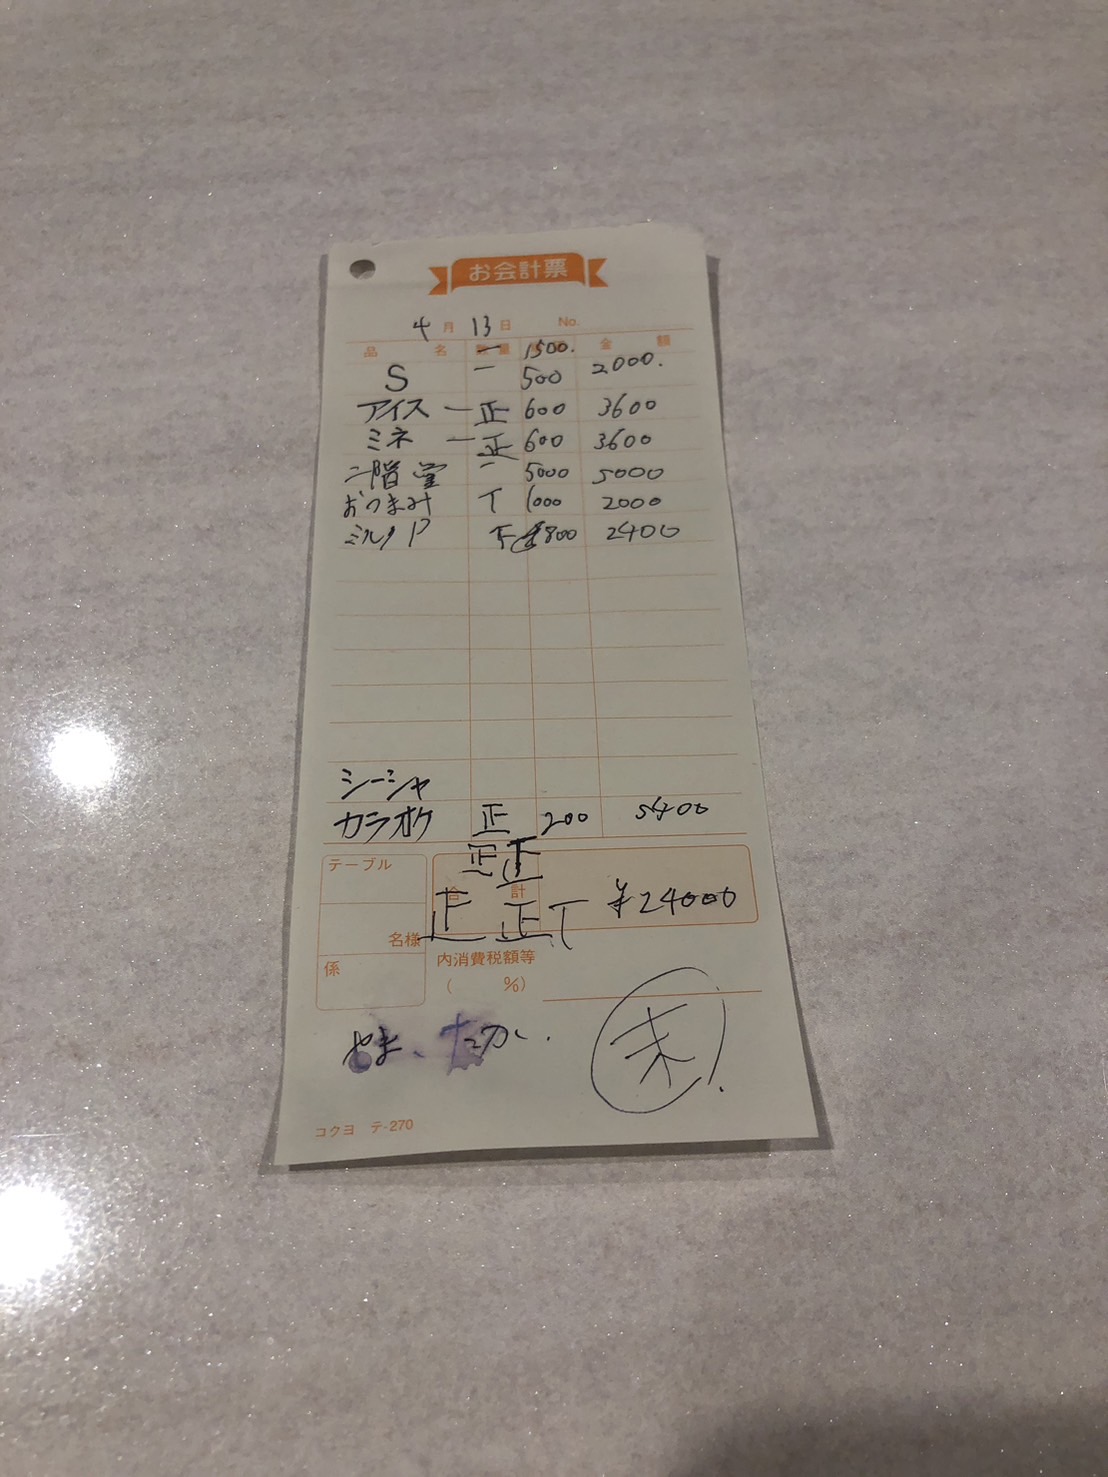 お会計票
4月13日 No.
品名 数量 金額
一 1500.
S 一 500 2000.
アイス 一正 600 3600
ミネ 一正 600 3600
二階堂 一 5000 5000
おつまみ T 1000 2000
ミルクP 下 800 2400
シーシャ
カラオケ 正 200 5400
正正
テーブル
合計 ¥24000
正 正T
名様
係
内消費税額等
( %)
やま、たかし.
未
コクヨ テ-270